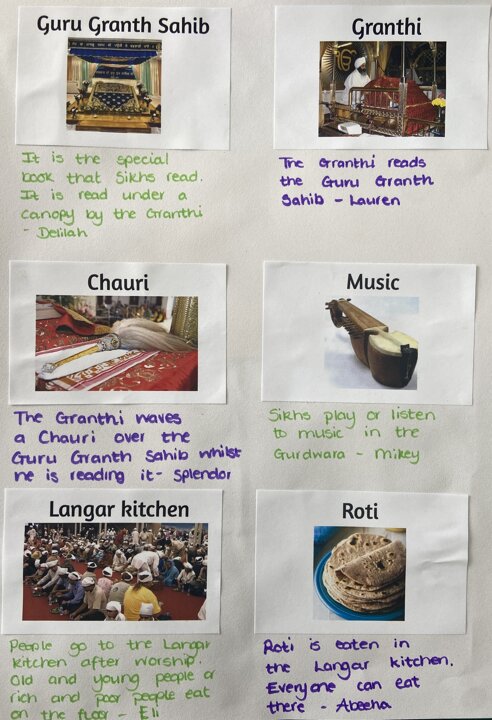 Guru Granth Sahib
It is the special
book that Sikhs read.
It is read under a
canopy by the Granthi
- Delilah
Granthi
The Granthi reads
the Guru Granth
Sahib - Lauren
Chauri
The Granthi waves
a Chauri over the
Guru Granth Sahib whilst
he is reading it- Splendor
Music
Sikhs play or listen
to music in the
Gurdwara - Mikey
Langar kitchen
People go to the Langar
kitchen after worship.
Old and young people or
rich and poor people eat
on the floor - Eli
Roti
Roti is eaten in
the Langar kitchen.
Everyone can eat
there - Abeeha